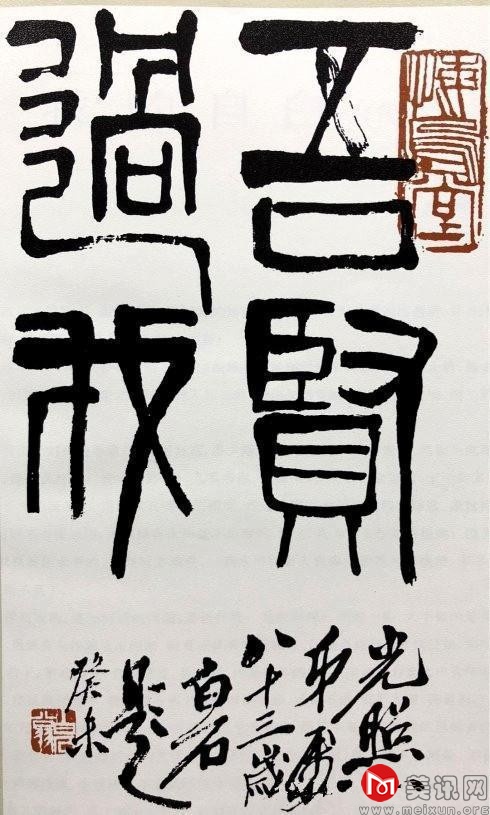 吾賢
過我
光照
弟屬
八十三歲
白石
題
癸未
悔烏堂
美讯网
www.meixun.org